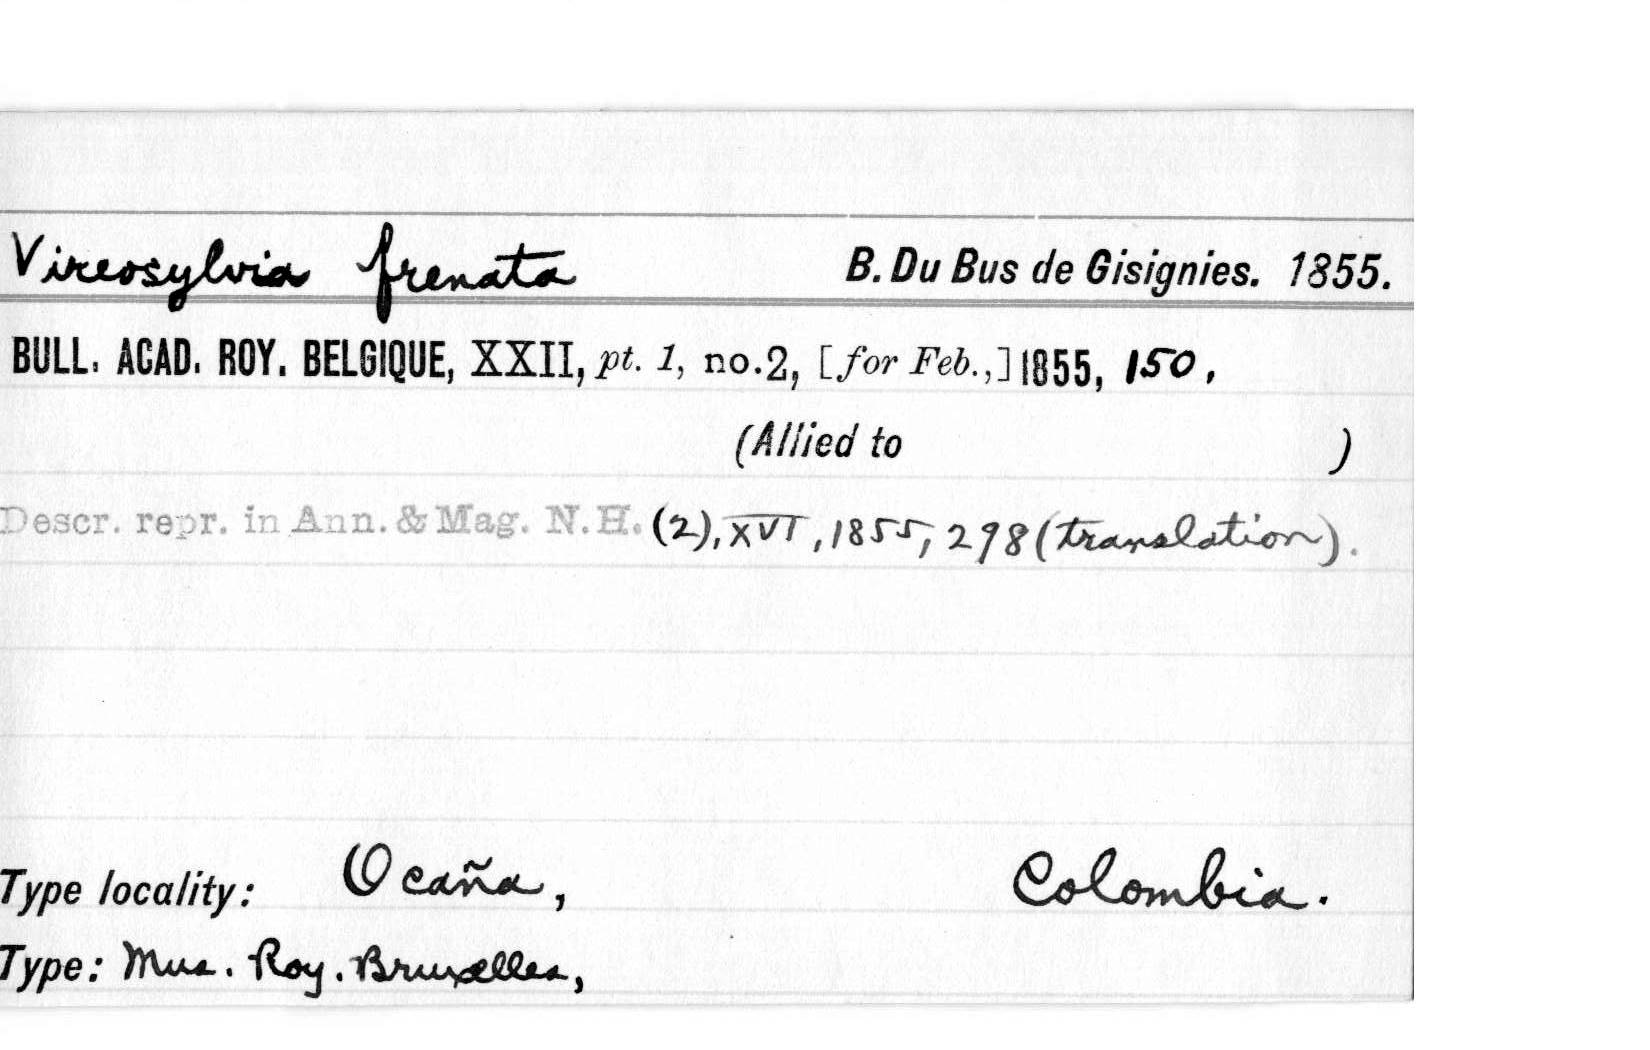 Vireosylvia frenata B. Du Bus de Gisignies. 1855.
BULL. ACAD. ROY. BELGIQUE, XXII, pt. 1, no.2, [for Feb.,] 1855, 150,
(Allied to )
Descr. repr. in Ann. & Mag. N.H. (2), XVI, 1855, 298 (translation).
Type locality: Ocaña, Colombia.
Type: Mus. Roy. Bruxelles,